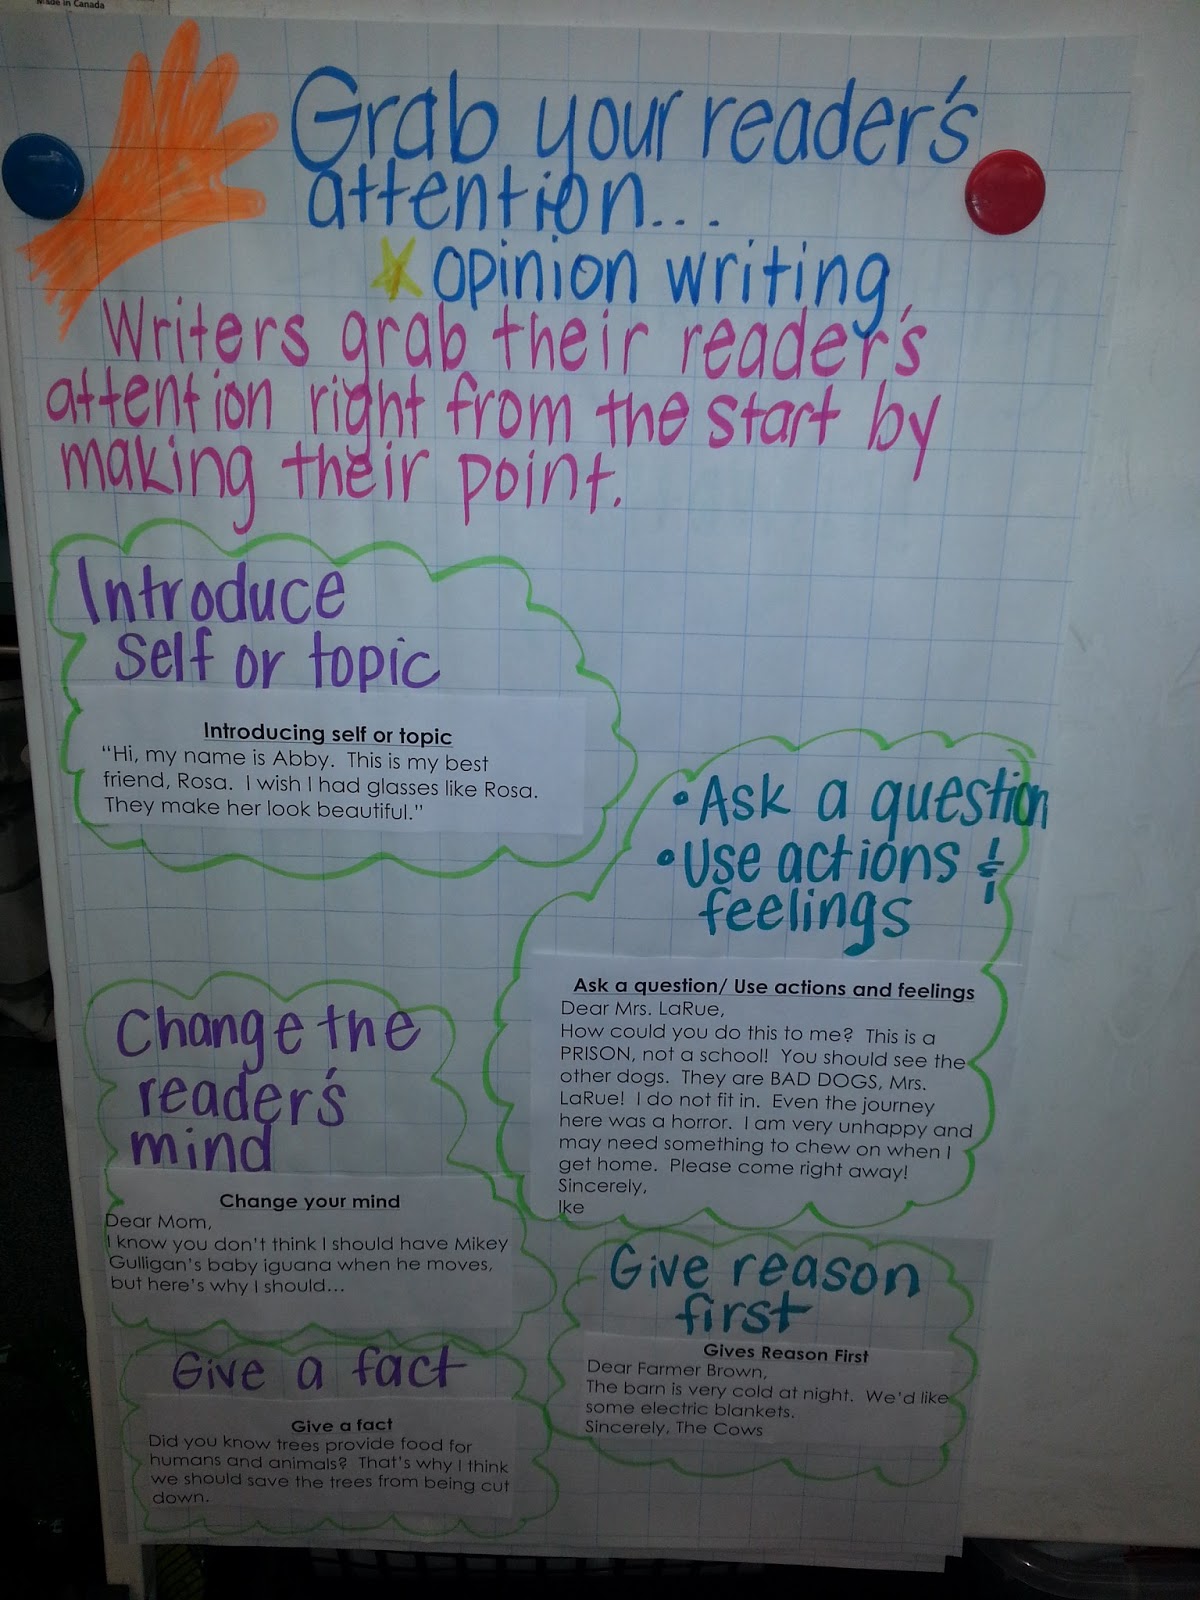 Made in Canada
Grab your reader's
attention...
opinion writing
Writers grab their reader's
attention right from the start by
making their point.
Introduce
self or topic
Introducing self or topic
"Hi, my name is Abby. This is my best
friend, Rosa. I wish I had glasses like Rosa.
They make her look beautiful."
• Ask a question
• Use actions &
feelings
Ask a question/ Use actions and feelings
Dear Mrs. LaRue,
How could you do this to me? This is a
PRISON, not a school! You should see the
other dogs. They are BAD DOGS, Mrs.
LaRue! I do not fit in. Even the journey
here was a horror. I am very unhappy and
may need something to chew on when I
get home. Please come right away!
Sincerely,
Ike
Change the
reader's
mind
Change your mind
Dear Mom,
I know you don't think I should have Mikey
Gulligan's baby iguana when he moves,
but here's why I should...
Give reason
first
Gives Reason First
Dear Farmer Brown,
The barn is very cold at night. We'd like
some electric blankets.
Sincerely, The Cows
Give a fact
Give a fact
Did you know trees provide food for
humans and animals? That's why I think
we should save the trees from being cut
down.